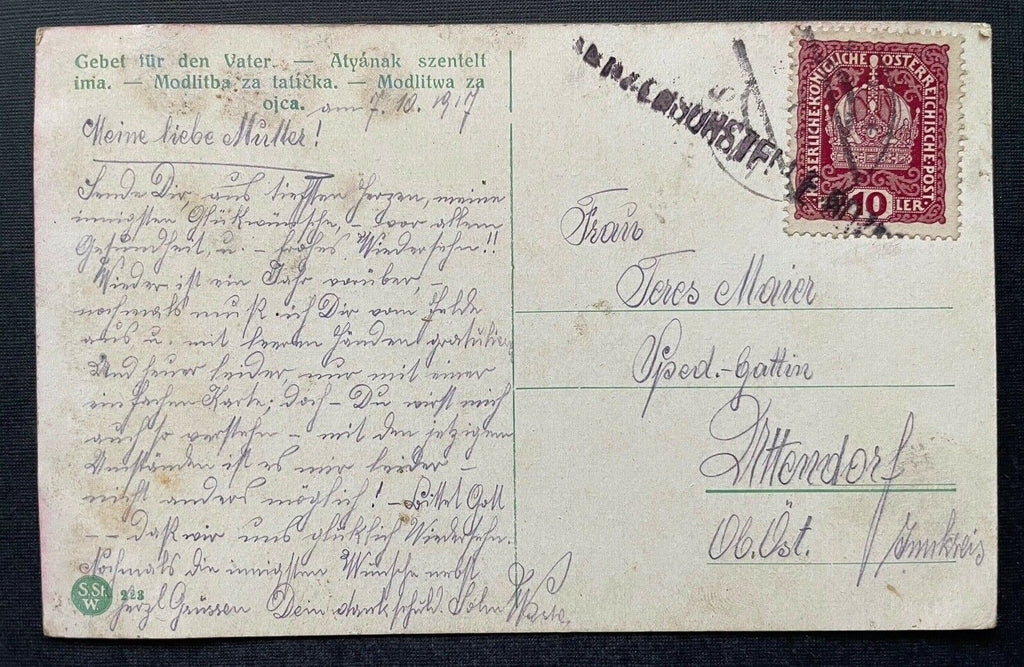 Gebet für den Vater. — Atyának szentelt
ima. — Modlitba za tatíčka. — Modlitwa za
ojca.
am 7.10.1917
Meine liebe Mutter!
Sende Dir, aus tiefsten Herzen, meine
innigsten Glükwünsche, – vor allem
Gesundheit, u. – frohes Wiedersehen!!
Wieder ist ein Jahr vorüber, –
nochmals muß ich Dir vom Felde
aus u. mit leeren Händen gratulieren
Und heuer leider nur mit einer
einfachen Karte; doch – Du wirst mich
auch so verstehn – mit den jetzigen
Umständen ist es mir leider –
nicht anders möglich! – Bittet Gott
– – daß wir uns glücklich Wiedersehn.
Nochmals die innigsten Wünsche nebst
herzl. Grüssen Dein dankschuld. Sohn
S.St.
W.
223
KAISERLICHE·KÖNIGLICHE ÖSTERREICHISCHE·POST
10
HELLER
Frau
Teres Maier
Sped.-Gattin
Uttendorf
Ob. Öst. Innkreis